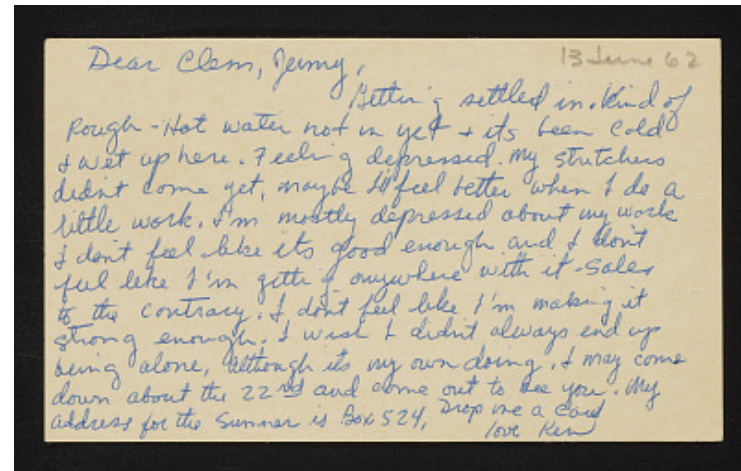 Dear Clem, Jenny,
13 June 62
Getting settled in. Kind of
Rough - Hot water not in yet + its been cold
& wet up here. Feeling depressed. My stretchers
didnt come yet, maybe I'll feel better when I do a
little work. I'm mostly depressed about my work
I dont feel like its good enough and I dont
feel like I'm getting anywhere with it - Sales
to the contrary. I dont feel like I'm making it
strong enough. I wish I didnt always end up
being alone, although its my own doing. I may come
down about the 22nd and come out to see you. My
address for the Summer is Box 524, Drop me a card
love Ken